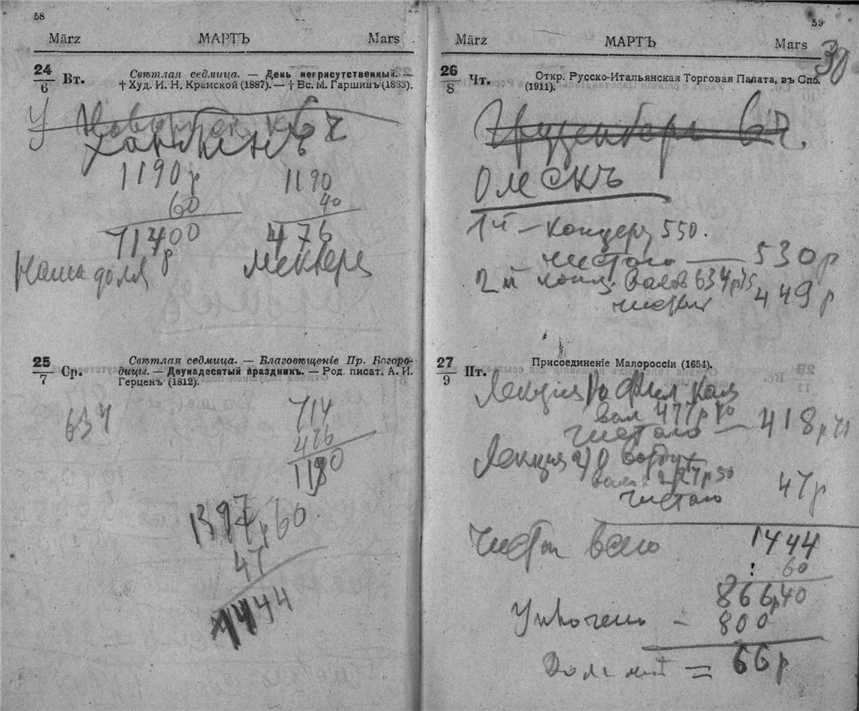 58
März МАРТЪ Mars
24
6
Вт.
Свѣтлая седмица. — День неприсутственный. —
† Худ. И. Н. Крамской (1887). — † Вс. М. Гаршинъ (1888).
У
Харбинъ
1190р 1190
60 40
71400 476
Наша доля
25
7
Ср.
Свѣтлая седмица. — Благовѣщеніе Пр. Богоро-
дицы. — Двунадесятый праздникъ. — Род. писат. А. И.
Герценъ (1812).
634
714
476
1190
1397р60
47
1444
59
März МАРТЪ Mars
30
26
8
Чт.
Откр. Русско-Итальянская Торговая Палата, въ Спб.
(1911).
6 ч.
Омскъ
1й — концерт 550.
чистого — 530р
2й конц. валов 634р75
чистых 449р
27
9
Пт.
Присоединеніе Малороссіи (1654).
Лекция
вал 477р70
чистого — 418р
Лекция
47р
чистого
Чистых всего 1444
60
866р40
Уплочено — 800
= 66р